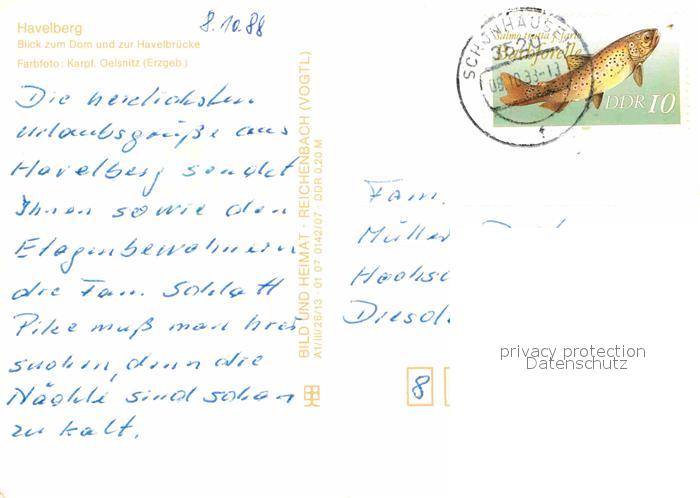 Havelberg
Blick zum Dom und zur Havelbrücke
Farbfoto: Karpf, Oelsnitz (Erzgeb.)
8.10.88
Die herzlichsten
Urlaubsgrüße aus
Havelberg sendet
Ihnen sowie den
Etagenbewohnern
die Fam. Schlatt
Pilze muß man hier
suchen, denn die
Nächte sind schon
zu kalt.
BILD UND HEIMAT · REICHENBACH (VOGTL)
A1/III/26/13 · 01 07 0142/07 · DDR 0,20 M
SCHÖNHAUSEN
3529
Salmo trutta f. fario
Bachforelle
DDR 10
Fam.
Müller
Dresd
8
privacy protection
Datenschutz